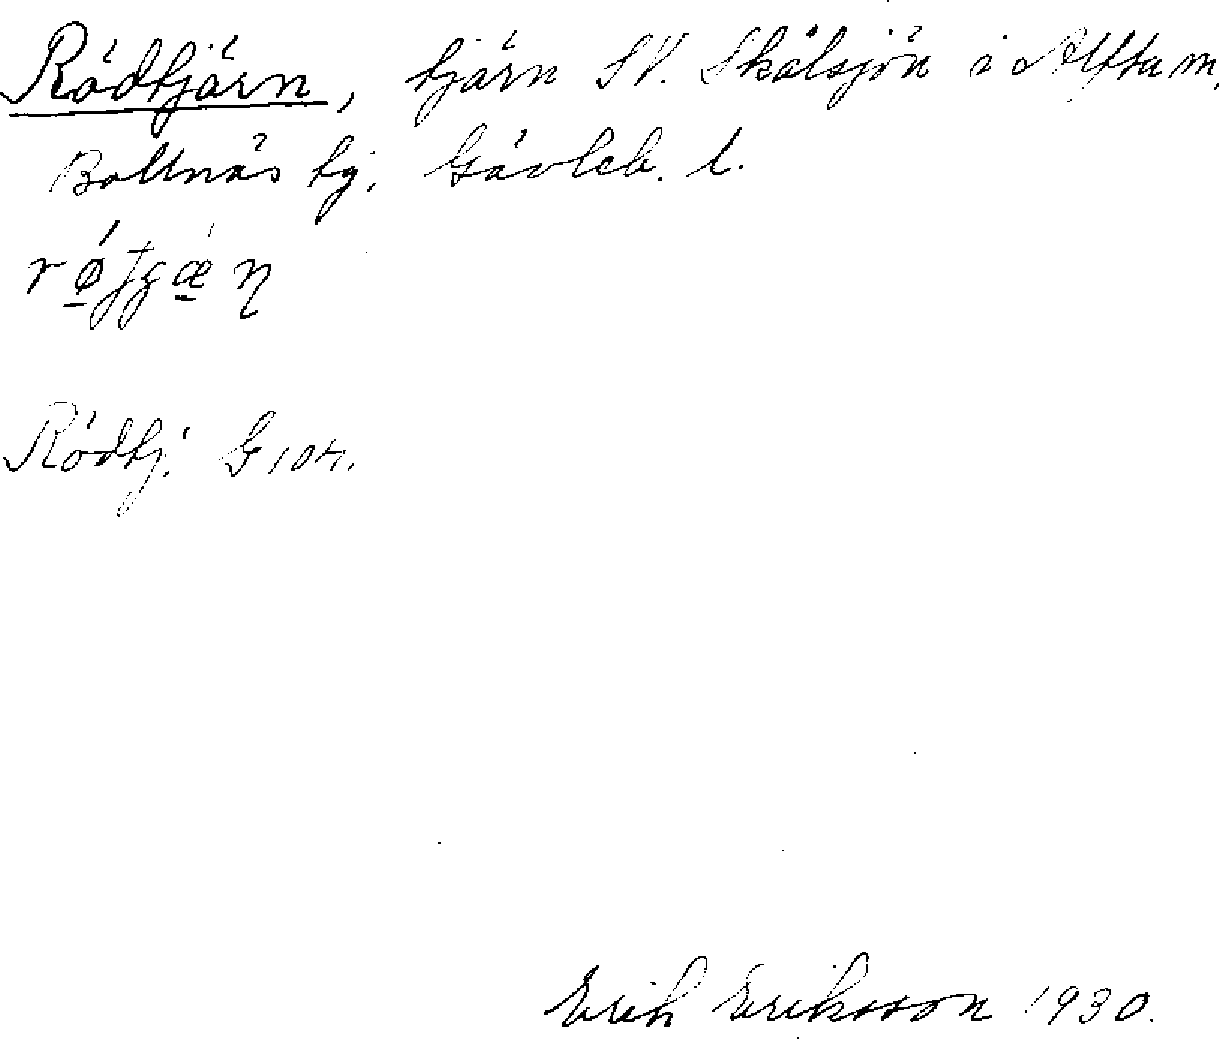 Rödtjärn, tjärn SV. Skålsjön i Alfta sn,
Bollnäs tg, Gävleb. l.
Rödtj. G 104.
Erik Eriksson 1930.